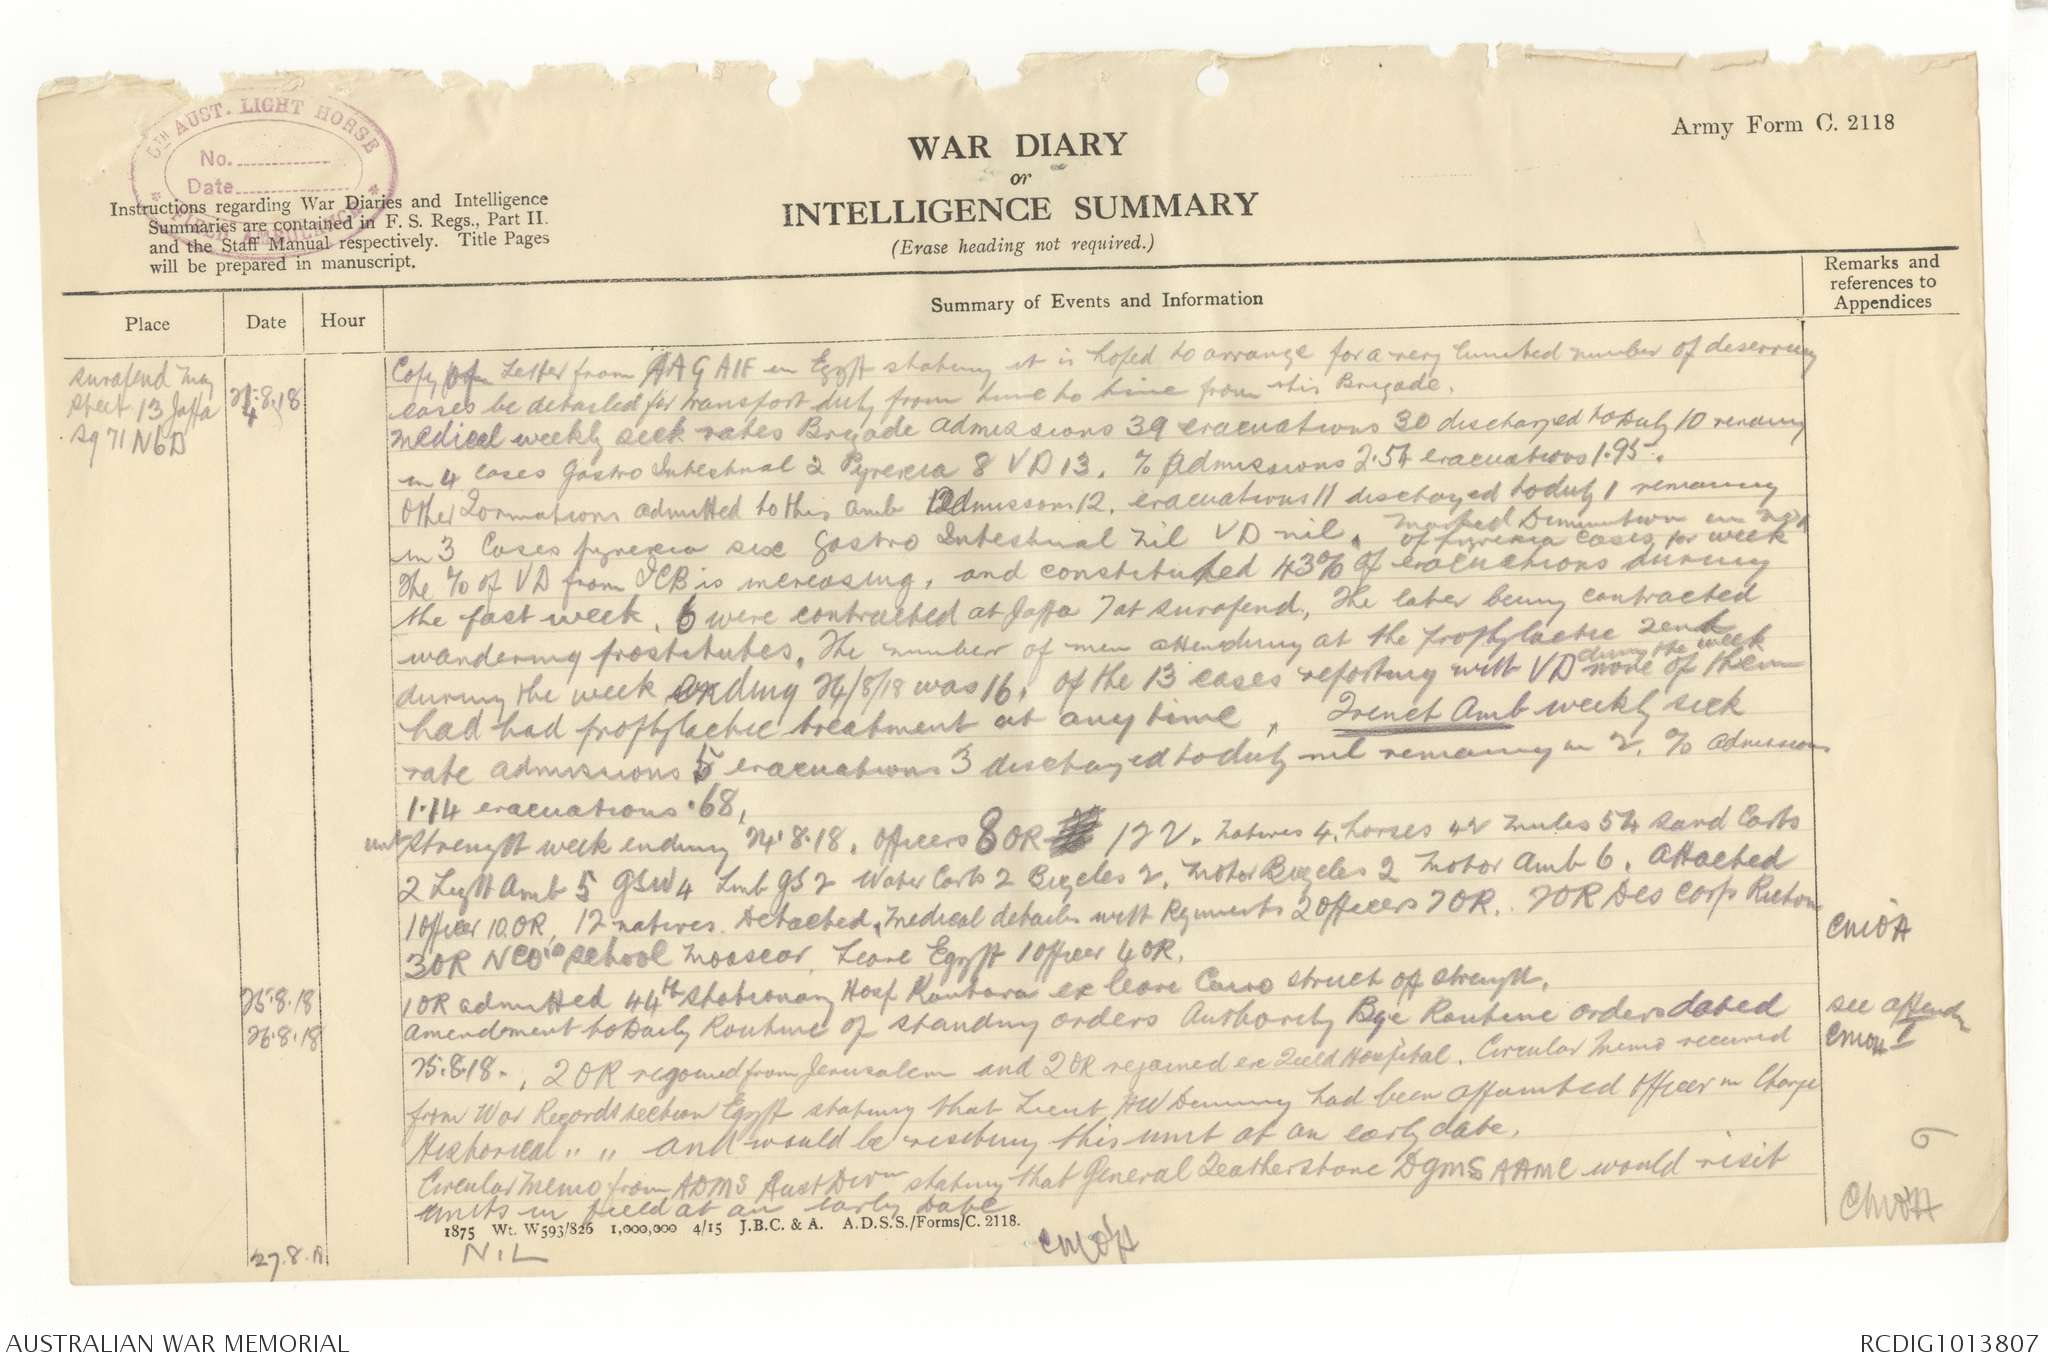 5TH AUST. LIGHT HORSE
No.
Date
FIELD AMBULANCE
Army Form C. 2118
WAR DIARY
or
INTELLIGENCE SUMMARY
(Erase heading not required.)
Instructions regarding War Diaries and Intelligence
Summaries are contained in F. S. Regs., Part II.
and the Staff Manual respectively. Title Pages
will be prepared in manuscript.
Place
Date
Hour
Summary of Events and Information
Remarks and
references to
Appendices
Surafend Map
Sheet 13 Jaffa
Sq 71 N6D
24.8.18
Copy of Letter from AAG AIF in Egypt stating it is hoped to arrange for a very limited number of deserving
cases be detailed for transport duty from time to time from this Brigade.
Medical weekly sick rates Brigade admissions 39 evacuations 30 discharged to Duty 10 remaing
in 4 cases Gastro Intestinal 2 Pyrexia 8 VD 13. % Admissions 2.54 evacuations 1.95.
Other Formations admitted to this amb admissions 12. evacuations 11 discharged to duty 1 remaining
in 3 Cases pyrexia six Gastro Intestinal Nil VD nil. Marked Diminution in
of pyrexia cases for week
The % of VD from ICB is increasing, and constituted 43% of evacuations during
the past week. 6 were contracted at Jaffa 7 at Surafend, The later being contracted
wandering prostitutes. The number of men attending at the prophylactic tent
during the week ending 24/8/18 was 16. Of the 13 cases reporting with VD during the week none of them
had had prophylactic treatment at any time. French Amb weekly sick
rate admissions 5 evacuations 3 discharged to duty nil remaing in 2. % admissions
1.14 evacuations .68.
unit Strength week ending 24.8.18. Officers 8 OR 122. Natives 4. horses 42 mules 54 Sand Carts
2 Light Amb 5 GSW 4 Limb GS 2 Water Carts 2 Bicycles 2. Motor Bicycles 2 Motor Amb 6. Attached
1 Officer 10 OR, 12 natives. Detached, Medical details with Regiments 2 Officers 7 OR. 2 OR Des Corp Richon
3 OR NCO's School Moascar. Leave Egypt 1 Officer 4 OR.
CMOA
25.8.18
1 OR admitted 44th Stationary Hosp Kantara ex leave Cairo struck off strength.
26.8.18
Amendment to Daily Routine of standing orders Authority Bge Routine orders dated
25.8.18., 2 OR rejoined from Jerusalem and 2 OR rejoined ex Field Hospital. Circular Memo received
from War Records section Egypt stating that Lieut HW Denning had been appointed Officer in Charge
Historical " " and would be visiting this unit at an early date.
Circular Memo from ADMS Aust Divn stating that General Featherstone DGMS AAMC would visit
units in field at an early date
see appendix
I
CMOH
6
CMO'H
1875 Wt. W593/826 1,000,000 4/15 J.B.C. & A. A.D.S.S./Forms/C. 2118.
27.8.18
NIL
CMO'H
AUSTRALIAN WAR MEMORIAL
RCDIG1013807